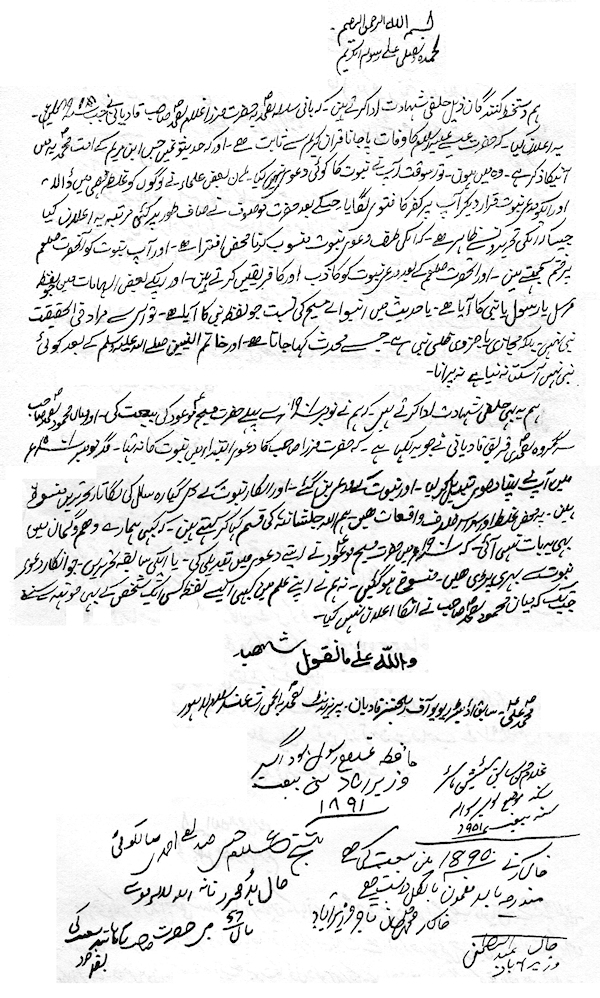 بسم اللہ الرحمن الرحیم
نحمدہ ونصلی علی رسولہ الکریم
ہم دستخط کنندگان ذیل حلفی شہادت ادا کرتے ہیں۔ کہ بانی سلسلہ احمدیہ حضرت مرزا غلام احمد صاحب قادیانی نے جب
یہ اعلان کیا کہ حضرت عیسے علیہ السلام کا وفات پا جانا قرآن کریم سے ثابت ہے۔ اور کہ حدیثوں میں جس ابن مریم کے امت محمدیہ میں
آنیکا ذکر ہے۔ وہ میں ہوں۔ تو اسوقت آپ نے نبوت کا کوئی دعوی نہیں کیا۔ ہاں بعض علماء نے لوگوں کو غلط فہمی میں ڈالا۔
اور آپکو مدعی نبوت قرار دیکر آپ پر کفر کا فتوی لگایا جسکے بعد حضرت موصوف نے صاف طور پر کئی مرتبہ یہ اعلان کیا
جیسا کہ انکی تحریروں سے ظاہر ہے۔ کہ انکی طرف دعوی نبوت منسوب کرنا محض افترا ہے۔ اور آپ نبوت کو آنحضرت صلعم
پر ختم سمجھتے ہیں۔ اور آنحضرت صلعم کے بعد مدعی نبوت کو کاذب اور کافر یقین کرتے ہیں۔ اور آپکے بعض الہامات میں جو لفظ
مرسل یا رسول یا نبی کا آیا ہے۔ یا حدیث میں آنیوالے مسیح کی نسبت جو لفظ نبی کا آیا ہے۔ تو اس سے مراد فی الحقیقت
نبی نہیں۔ بلکہ مجازی یا جزوی ظلی نبی ہے۔ جسے محدث کہا جاتا ہے۔ اور خاتم النبیین صلے اللہ علیہ وسلم کے بعد کوئی
نبی نہیں آسکتا نہ نیا نہ پرانا۔
ہم یہ بھی حلفی شہادت ادا کرتے ہیں۔ کہ ہم نے نومبر ۱۹۰۱ء سے پہلے حضرت مسیح موعود کی بیعت کی۔ اور میاں محمود احمد صاحب
سرگروہ احمدی فریق قادیانی نے جو یہ لکھا ہے۔ کہ حضرت مرزا صاحب کا دعوی ابتدا میں نبوت کا نہ تھا۔ مگر نومبر ۱۹۰۱ء
میں آپ نے اپنا دعوی تبدیل کر لیا۔ اور نبوت کے مدعی بن گئے۔ اور انکار نبوت کے دس گیارہ سال کی لگاتار تحریریں منسوخ
ہیں۔ یہ محض غلط اور سراسر خلاف واقعات ہیں۔ ہم اللہ جلشانہ کی قسم کھا کر کہتے ہیں۔ کہ کبھی ہمارے وہم و گمان میں
بھی یہ بات نہیں آئی۔ کہ ۱۹۰۱ء میں حضرت مسیح موعود نے اپنے دعوی میں تبدیلی کی۔ یا انکی سابقہ تحریریں۔ جو انکار دعوی
نبوت سے بھری پڑی ہیں۔ منسوخ ہوگئیں۔ نہ ہم نے اپنے علم میں کبھی ایسے لفظ کسی ایک شخص کے بھی مونہہ سے سنے
جب تک کہ میاں محمود احمد صاحب نے انکا اعلان نہیں کیا۔
واللہ علی ما نقول شہید
محمد علی۔ سابق اڈیٹر ریویو آف ریلیجنز قادیان۔ پریزیڈنٹ احمدیہ انجمن اشاعت اسلام لاہور
حافظ غلام رسول
وزیرآباد سن بیعت
۱۸۹۱
غلام حسن
خاکسار نے 1895 میں بیعت کی ہے
مندرجہ بالا مضمون بالکل درست ہے
خاکسار تاجر وزیرآباد